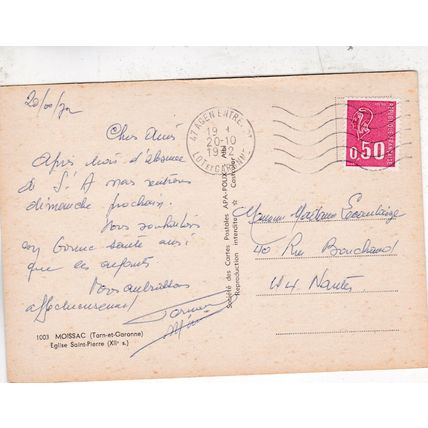 20/10/72
Chers Amis
Après mois d'absence
de St A nous rentrons
dimanche prochain.
Vous souhaitons
en bonne santé ainsi
que les enfants
Vous embrassons
affectueusement
1003 MOISSAC (Tarn-et-Garonne)
Eglise Saint-Pierre (XIIe s.)
Société des Cartes Postales APA-POUX - Albi
Reproduction interdite
47 AGEN ENTREPOT
19 H
20-10
1972
LOT ET GARONNE
0,50
Monsieur Madame
40 Rue Bouchaud
44 Nantes